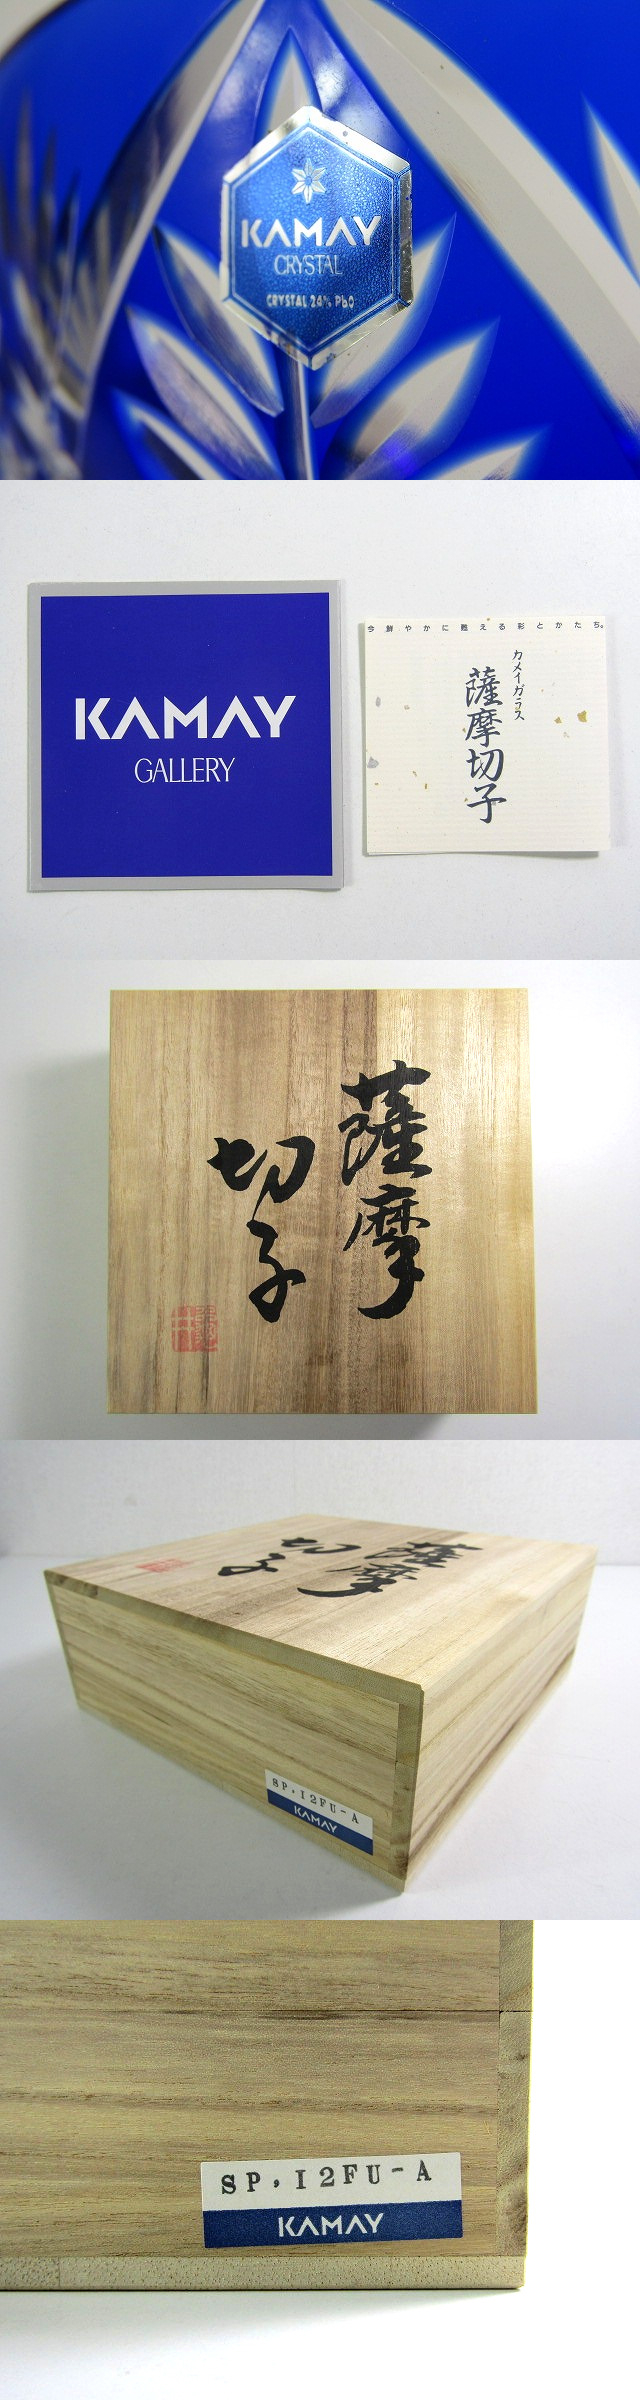 KAMAY
CRYSTAL
CRYSTAL 24% PbO
KAMAY
GALLERY
今鮮やかに甦える彩とかたち。
カメイガラス
薩摩切子
薩摩
切子
薩摩
切子
SP,12FU-A
KAMAY
SP,12FU-A
KAMAY